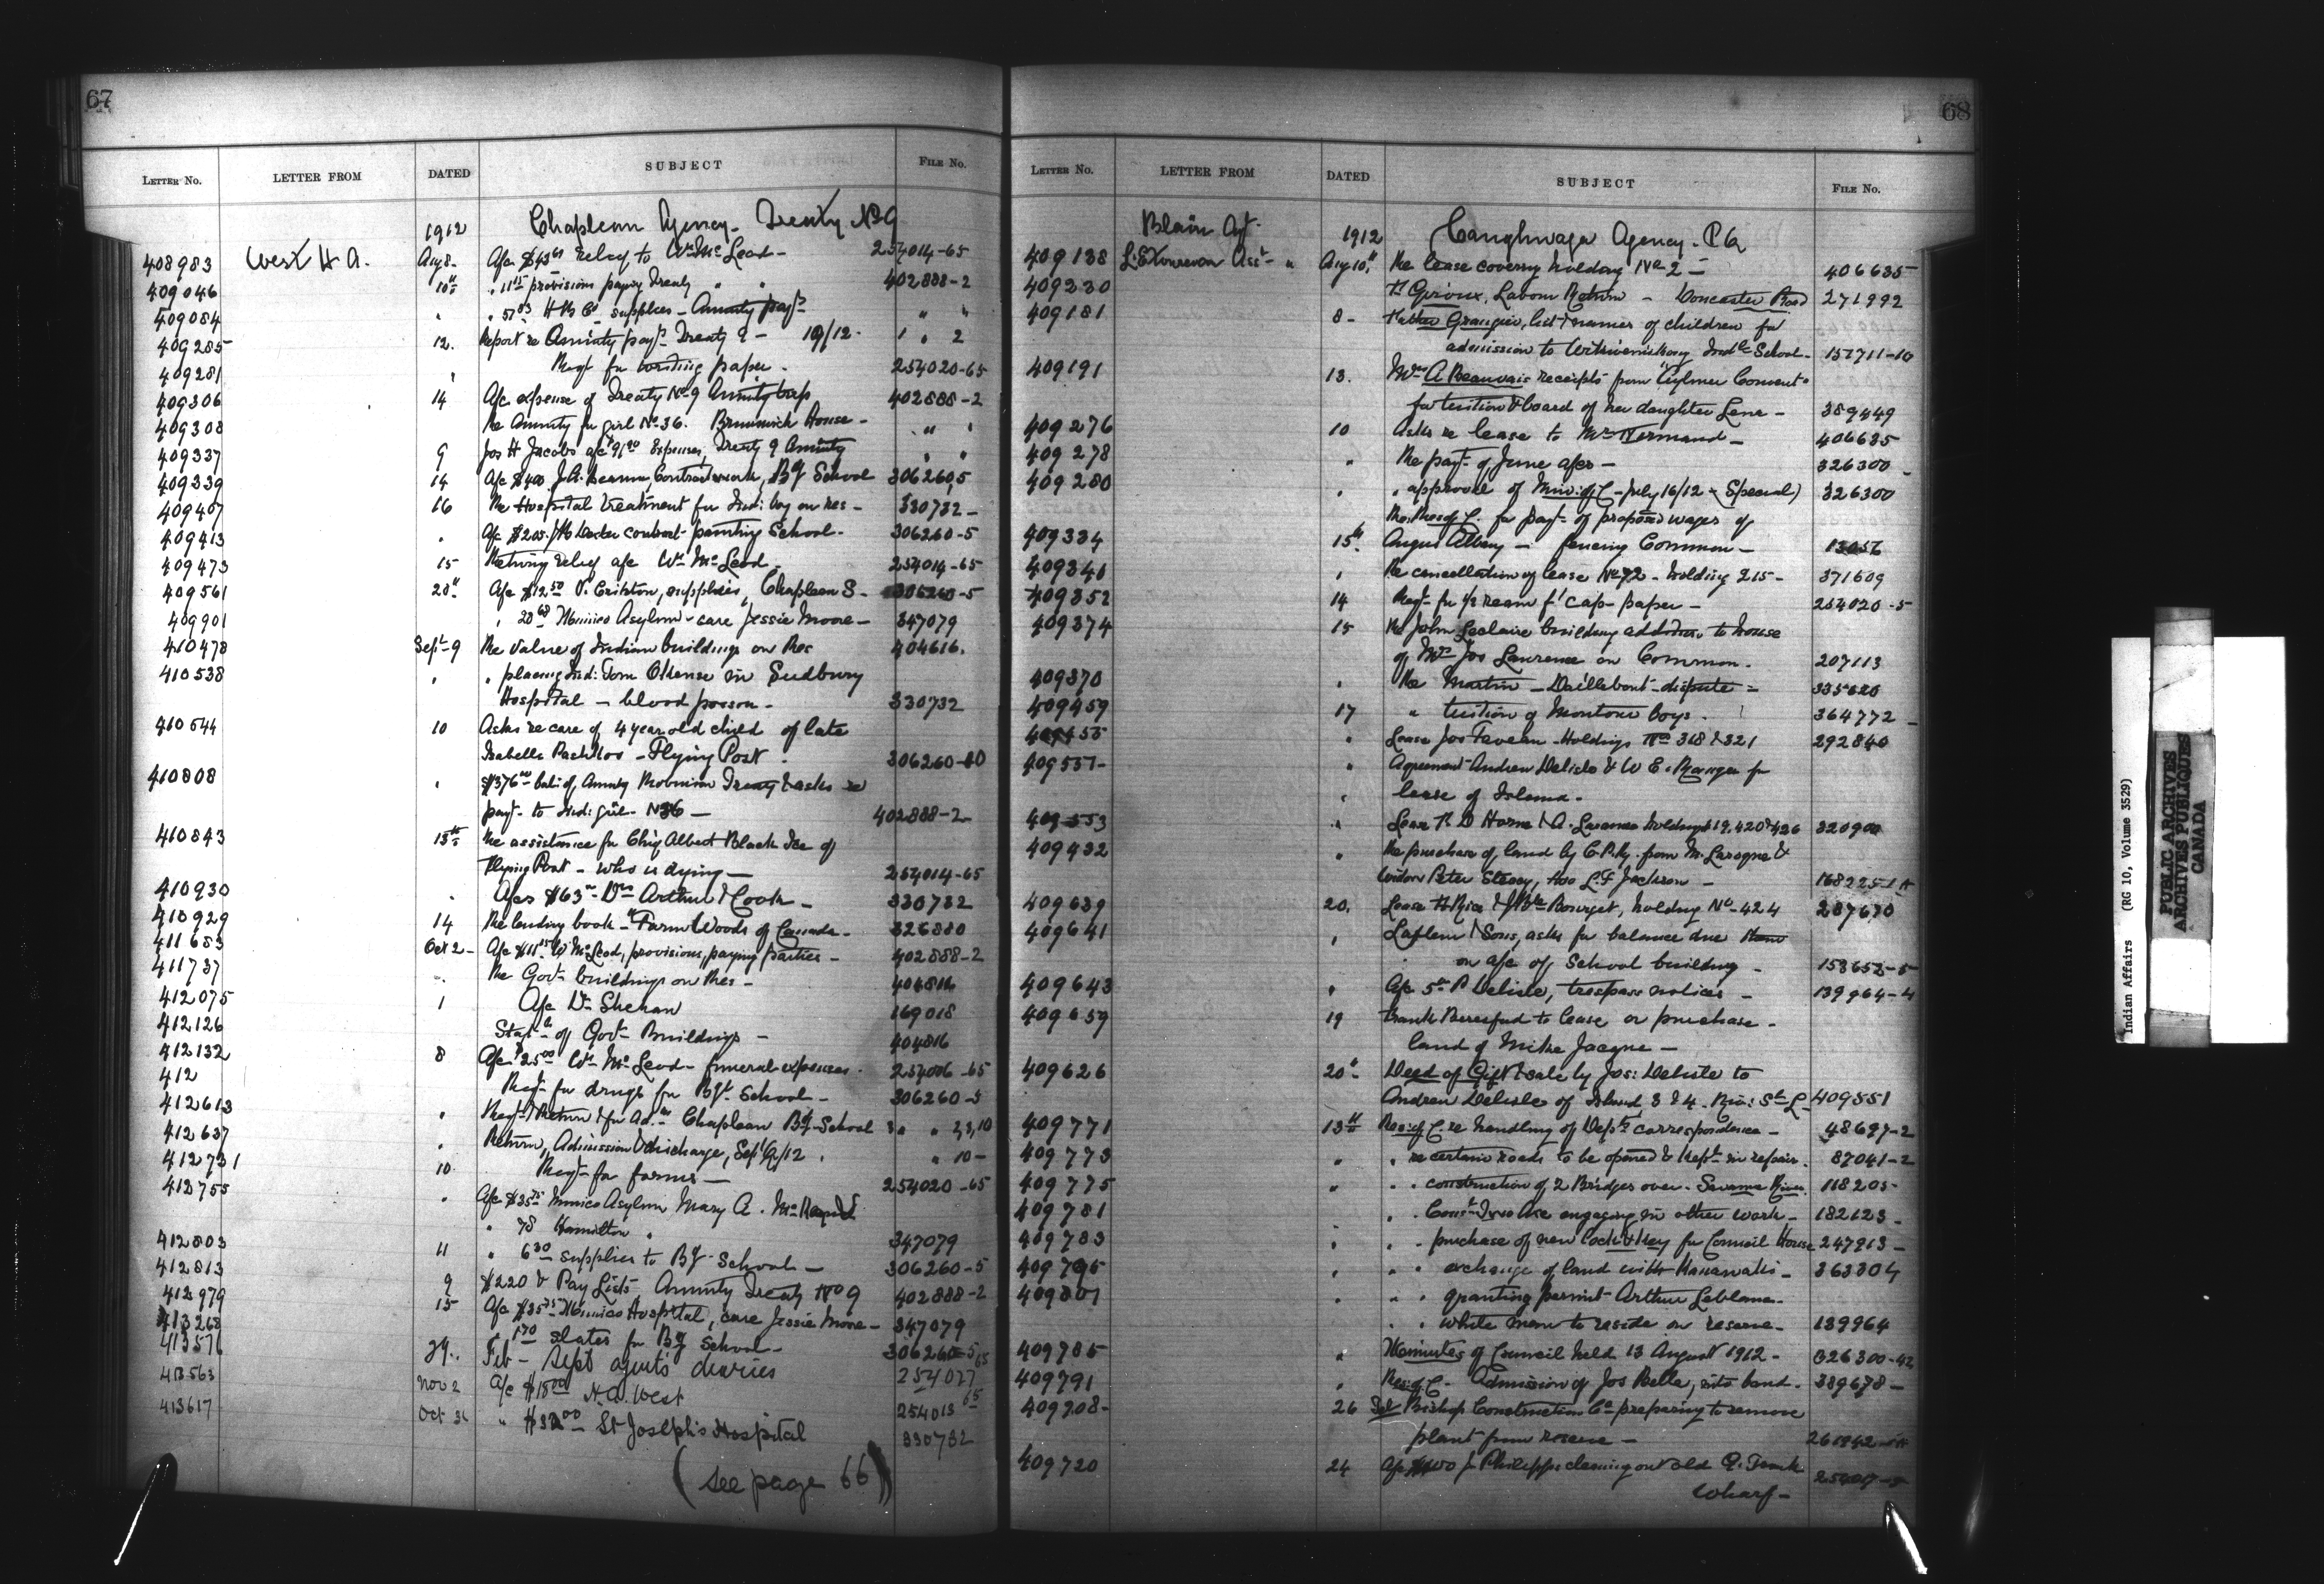 67
LETTER No. LETTER FROM DATED SUBJECT FILE No.
1912 Chapleau Agency - Treaty No 9
408983 West H A. Aug 8 - A/c $43 61 relief to Wm McLeod - 254014-65
409046 10th " 11 15 provisions paying Treaty " " 402888-2
409084 " " 57 03 H B Co supplies - Annuity payts " "
409285 12. Report re Annuity payt Treaty 9 - 1912 - " " 2
409281 " Reqt for writing paper - 254020-65
409306 14 A/c expense of Treaty No 9 Annuity trip 402888-2
409308 Re Annuity for girl No 36. Brunswick House - " "
409337 9 Jos H Jacobs a/c expenses, Treaty 9 Annuity " "
409339 14 A/c $400 J.A. Contract work, Bg School 306260-5
409407 16 Re Hospital treatment for Ind: boy on Res - 330732 -
409413 " A/c $205 contract painting School - 306260-5
409473 15 Returning relief a/c Wm McLeod - 254014-65
409561 20th A/c $12 50 supplies, Chapleau S - 306260-5
409901 " 20 68 Mimico Asylum - care Jessie Moore - 347079
410478 Sept 9 Re value of Indian buildings on Res 404616.
410538 " " placing Ind: Tom in Sudbury
Hospital - blood poison - 330732
410544 10 Asks re care of 4 year old child of late
Isabella - Flying Post - 306260-10
410808 " $376 00 bal: of Annuity Robinson Treaty & asks re
payt to Ind: girl - No 36 - 402888-2
410843 13th Re assistance for Chief Albert Black Ice of
Flying Post - who is dying - 254014-65
410930 " A/cs $63 - Drs Arthur & Cook - 330732
410929 14 Re lending book - "Farm Woods of Canada - 326880
411653 Oct 2 - A/c $11 15 W McLeod, provisions, paying parties - 402888-2
411737 " Re Govt buildings on Res - 404816
412075 1 A/c Dr Sheehan 169018
412126 Statt of Govt Buildings - 404816
412132 8 A/c $25 00 Wm McLeod - funeral expenses - 254006-65
412 Reqt for drugs for Bg School - 306260-5
412613 " Reqt & Return & for Ad. Chapleau Bg School " " 2,3,10
412637 " Return, Admission & discharge, Sept Q/12 . " 10 -
412731 10 Reqt for forms - 254020-65
412755 " A/c $35 75 Mimico Asylum Mary A.
" 78 Hamilton " 347079
412803 11 " 6 30 supplies to Bg School - 306260-5
412813 9 $220 & Pay Lists Annuity Treaty No 9 402888-2
412979 15 A/c $35 75 Mimico Hospital, care Jessie Moore - 347079
413268 " 1 70 slates for Bg School - 306260-5
413571 29. Feb - Sept agents diaries 254027 65
413563 Nov 2 A/c $15 00 H.A. West 254013 65
413617 Oct 31 " $32 00 St Joseph's Hospital 330732
(see page 66)
68
LETTER No. LETTER FROM DATED SUBJECT FILE No.
Blain Agt. 1912 Caughnawaga Agency - P.Q.
409138 Asst - " Aug 10th Re lease covering holding No 2 - 406635
409330 Th Giroux, Labour Return - Doncaster Road 271992
409181 8 - Father Granger, list & names of children for
admission to Wikwemikong Indl School - 157711-10
409191 13. Mrs A Beauvais receipts from Aylmer Convent
for tuition & board of her daughter Lena - 389449
409276 10 Asks re lease to Mr Normand - 406635
409278 " Re payt of June a/cs - 326300 -
409280 " " approval of Min: of C - July 16/12 - (Special) 326300
Re: Res of C. for payt of proposed wages of
409334 15th Angus Albany - fencing Common - 13056
409341 " Re cancellation of lease No 72 - holding 215 - 371609
409352 14 Reqt for 1/2 ream f' cap - paper - 254020-5
409374 15 Re John Leclaire building addition to house
of Mrs Jos Lawrence on Common. 207113
409370 " Re Martin - Daillebout - dispute - 335620
409459 17 " tuition of Montour boys. 364772 -
409455 " Lease Jos Faveau - Holdings Nos 318 & 321 292840
409557 - " Agreement Andrew Delisle & W E. for
" lease of Islands.
409553 " Lease D Horne & A. holdings 419, 420 & 426 320900
409432 " Re purchase of land by C.P.Ry. from M. &
widow Peter Stacey, also L.F Jackson - 168225-1A
409639 20. Lease H Rice & J Bte Bourget, holding No 424 287670
409641 " & Sons, asks for balance due them
on a/c of School building - 153653-5
409643 " A/c P Delisle, trespass notices - 139964-4
409659 19 Frank Beresford to lease or purchase -
land of Mike Jacque -
409626 20th - Deed of Gift & sale by Jos: Delisle to
Andrew Delisle of Island, 3 & 4. Riv: St L - 409551
409771 13th Res: of C. re handling of Dept's correspondence - 48697-2
409773 " " re certain roads to be opened & kept in repair. 87041-2
409775 " " " construction of 2 Bridges over - River 118205 -
409781 " " engaging in other work - 182123 -
409783 " " " purchase of new lock & key for Council House 247913 -
409795 " " " exchange of land with - 363304
409801 " " " granting permit Arthur Leblanc -
" " white man to reside on reserve - 139964
409785 " Minutes of Council held 13 August 1912 - 326300-42
409791 " Res: of C - Admission of Jos Belle, into band - 389678 -
409208 - 26 Bishop Construction Co preparing to remove
plant from reserve - 261942-
409720 24 A/c J. Philipps cleaning out old G. Trunk
Wharf -
Indian Affairs (RG 10, Volume 3529)
PUBLIC ARCHIVES
ARCHIVES PUBLIQUES
CANADA